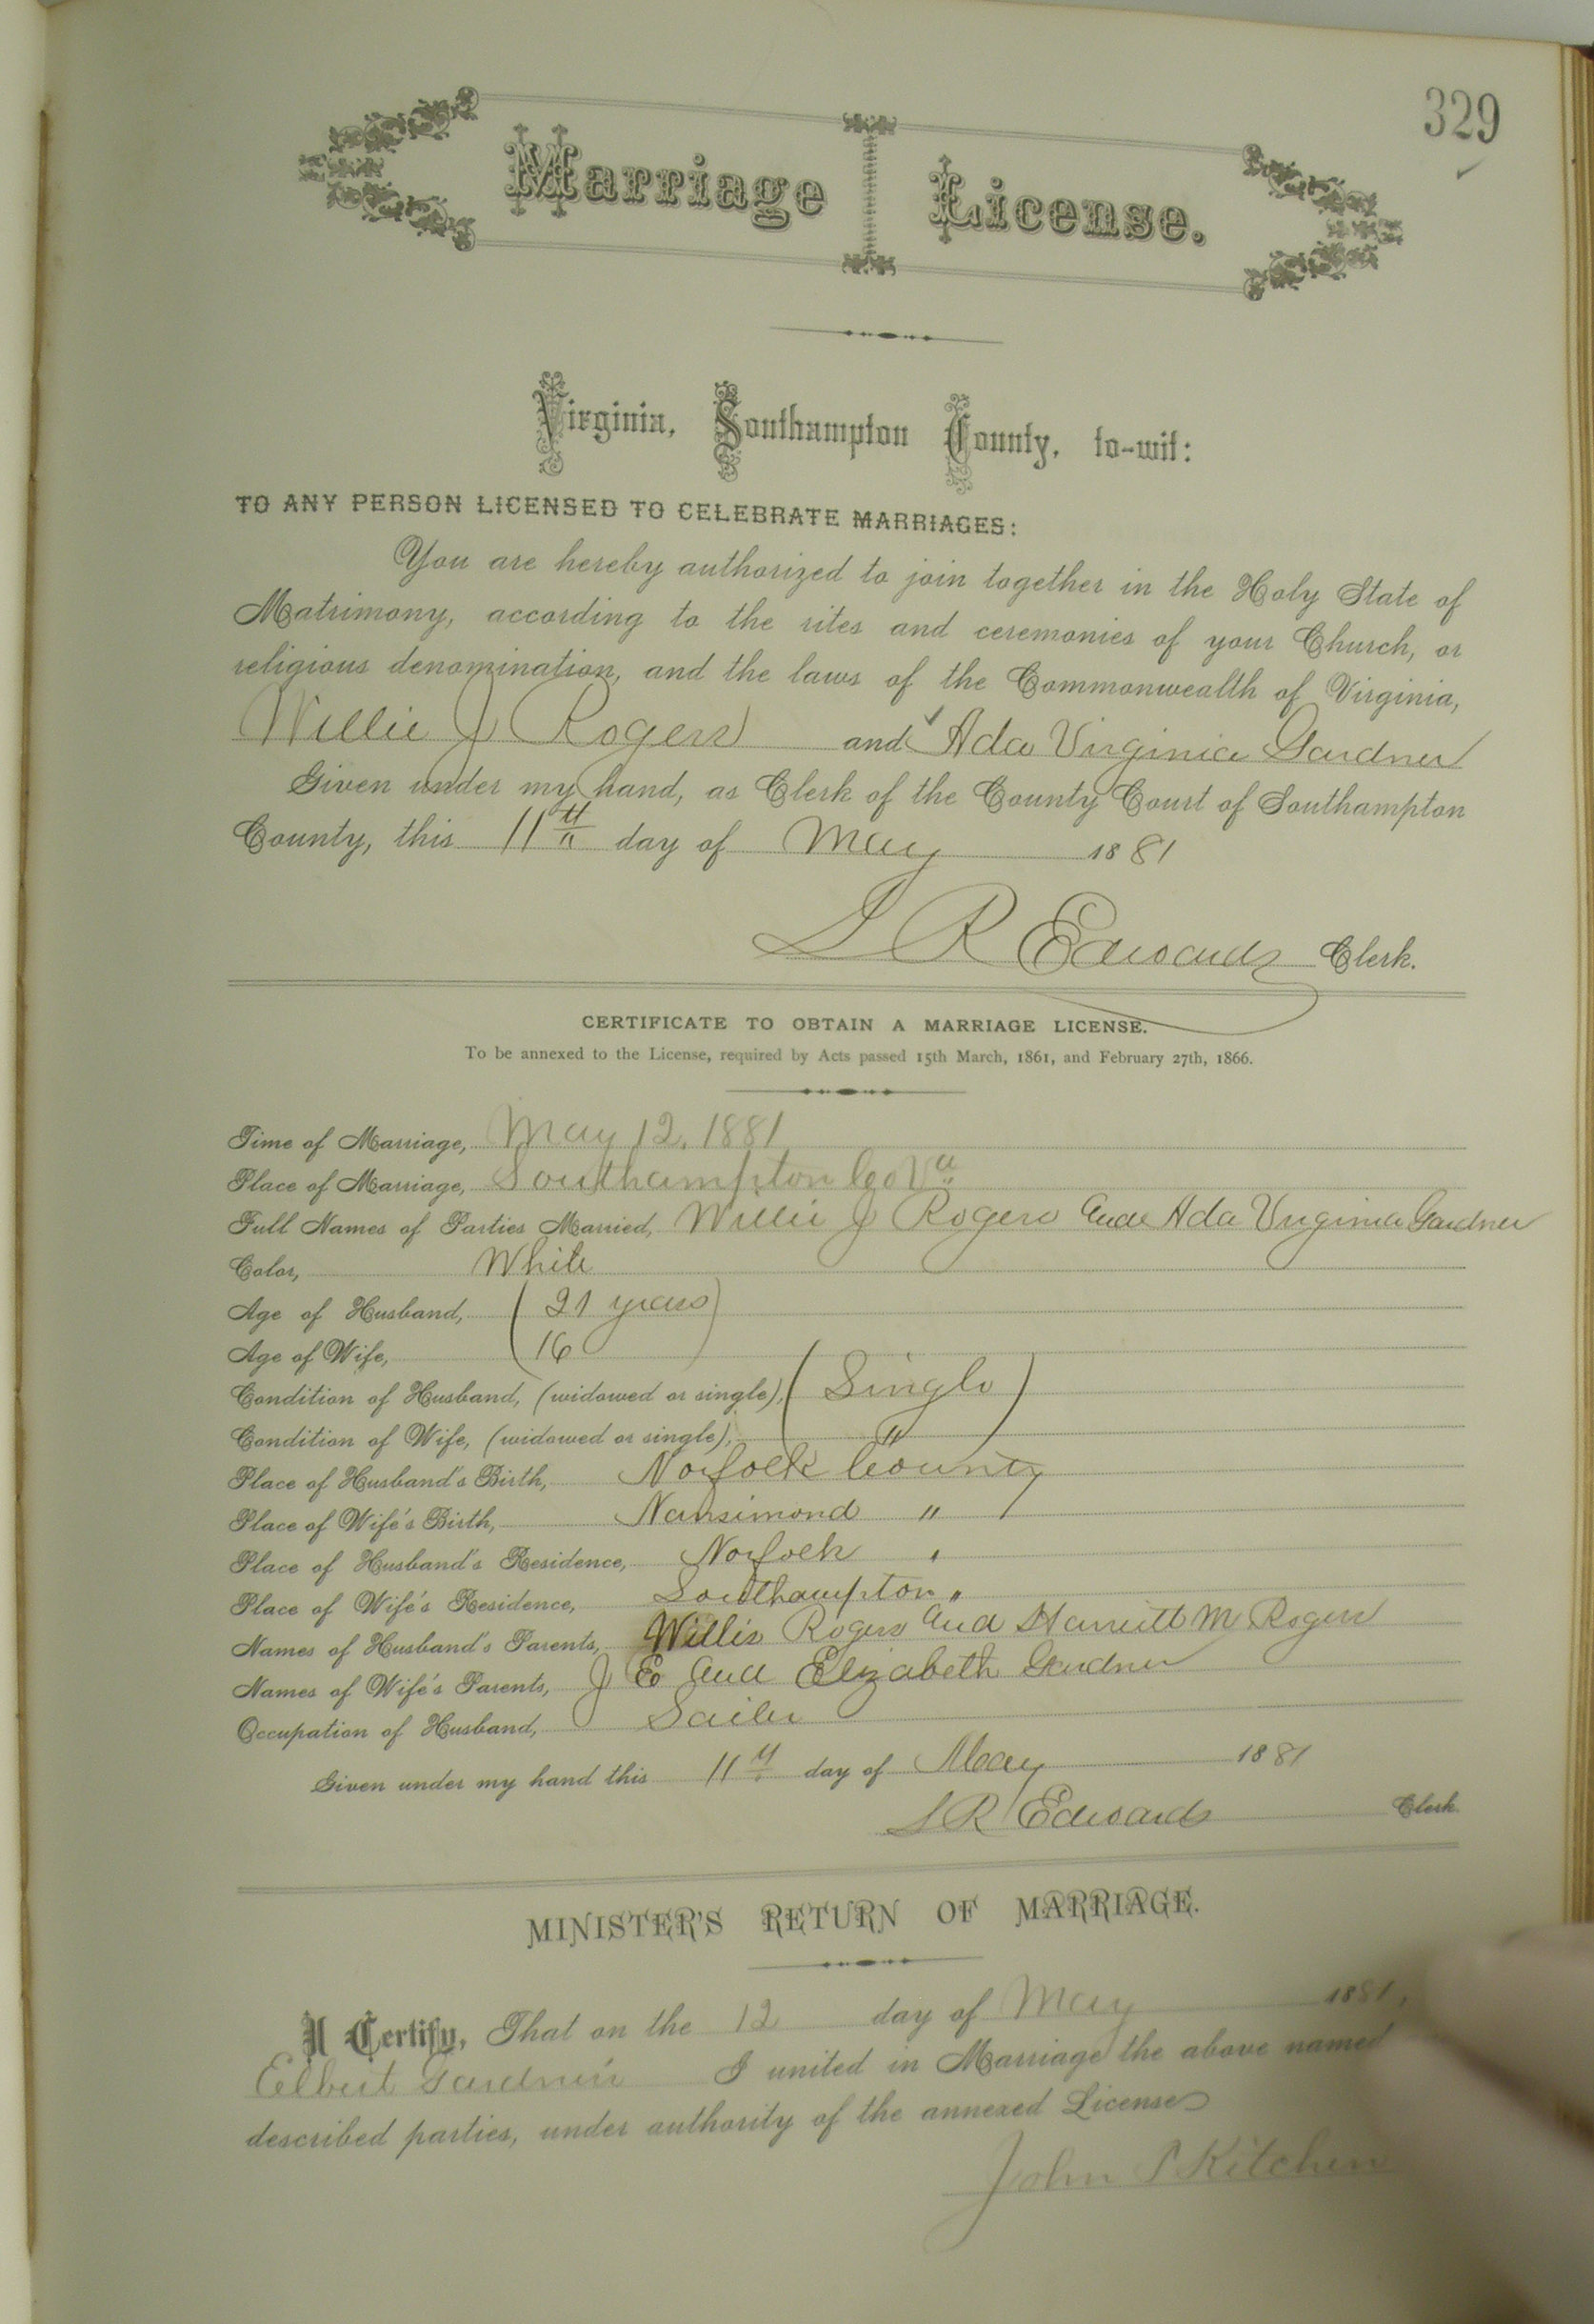 329
Marriage License.
Virginia, Southampton County, to-wit:
TO ANY PERSON LICENSED TO CELEBRATE MARRIAGES:
You are hereby authorized to join together in the Holy State of
Matrimony, according to the rites and ceremonies of your Church, or
religious denomination, and the laws of the Commonwealth of Virginia,
Willie J Rogers and Ada Virginia Gardner
Given under my hand, as Clerk of the County Court of Southampton
County, this 11th day of May 1881
L R Edwards Clerk.
CERTIFICATE TO OBTAIN A MARRIAGE LICENSE.
To be annexed to the License, required by Acts passed 15th March, 1861, and February 27th, 1866.
Time of Marriage, May 12, 1881
Place of Marriage, Southampton Co Va
Full Names of Parties Married, Willie J Rogers and Ada Virginia Gardner
Color, White
Age of Husband, (21 years)
Age of Wife, (16)
Condition of Husband, (widowed or single), (Single)
Condition of Wife, (widowed or single), "
Place of Husband's Birth, Norfolk County
Place of Wife's Birth, Nansimond "
Place of Husband's Residence, Norfolk "
Place of Wife's Residence, Southampton "
Names of Husband's Parents, Willis Rogers and Harriett M Rogers
Names of Wife's Parents, J E and Elizabeth Gardner
Occupation of Husband, Sailer
Given under my hand this 11th day of May 1881
L R Edwards Clerk.
MINISTER'S RETURN OF MARRIAGE.
I Certify, That on the 12 day of May 1881,
Elbert Gardner's I united in Marriage the above named
described parties, under authority of the annexed License
John S Kitchen